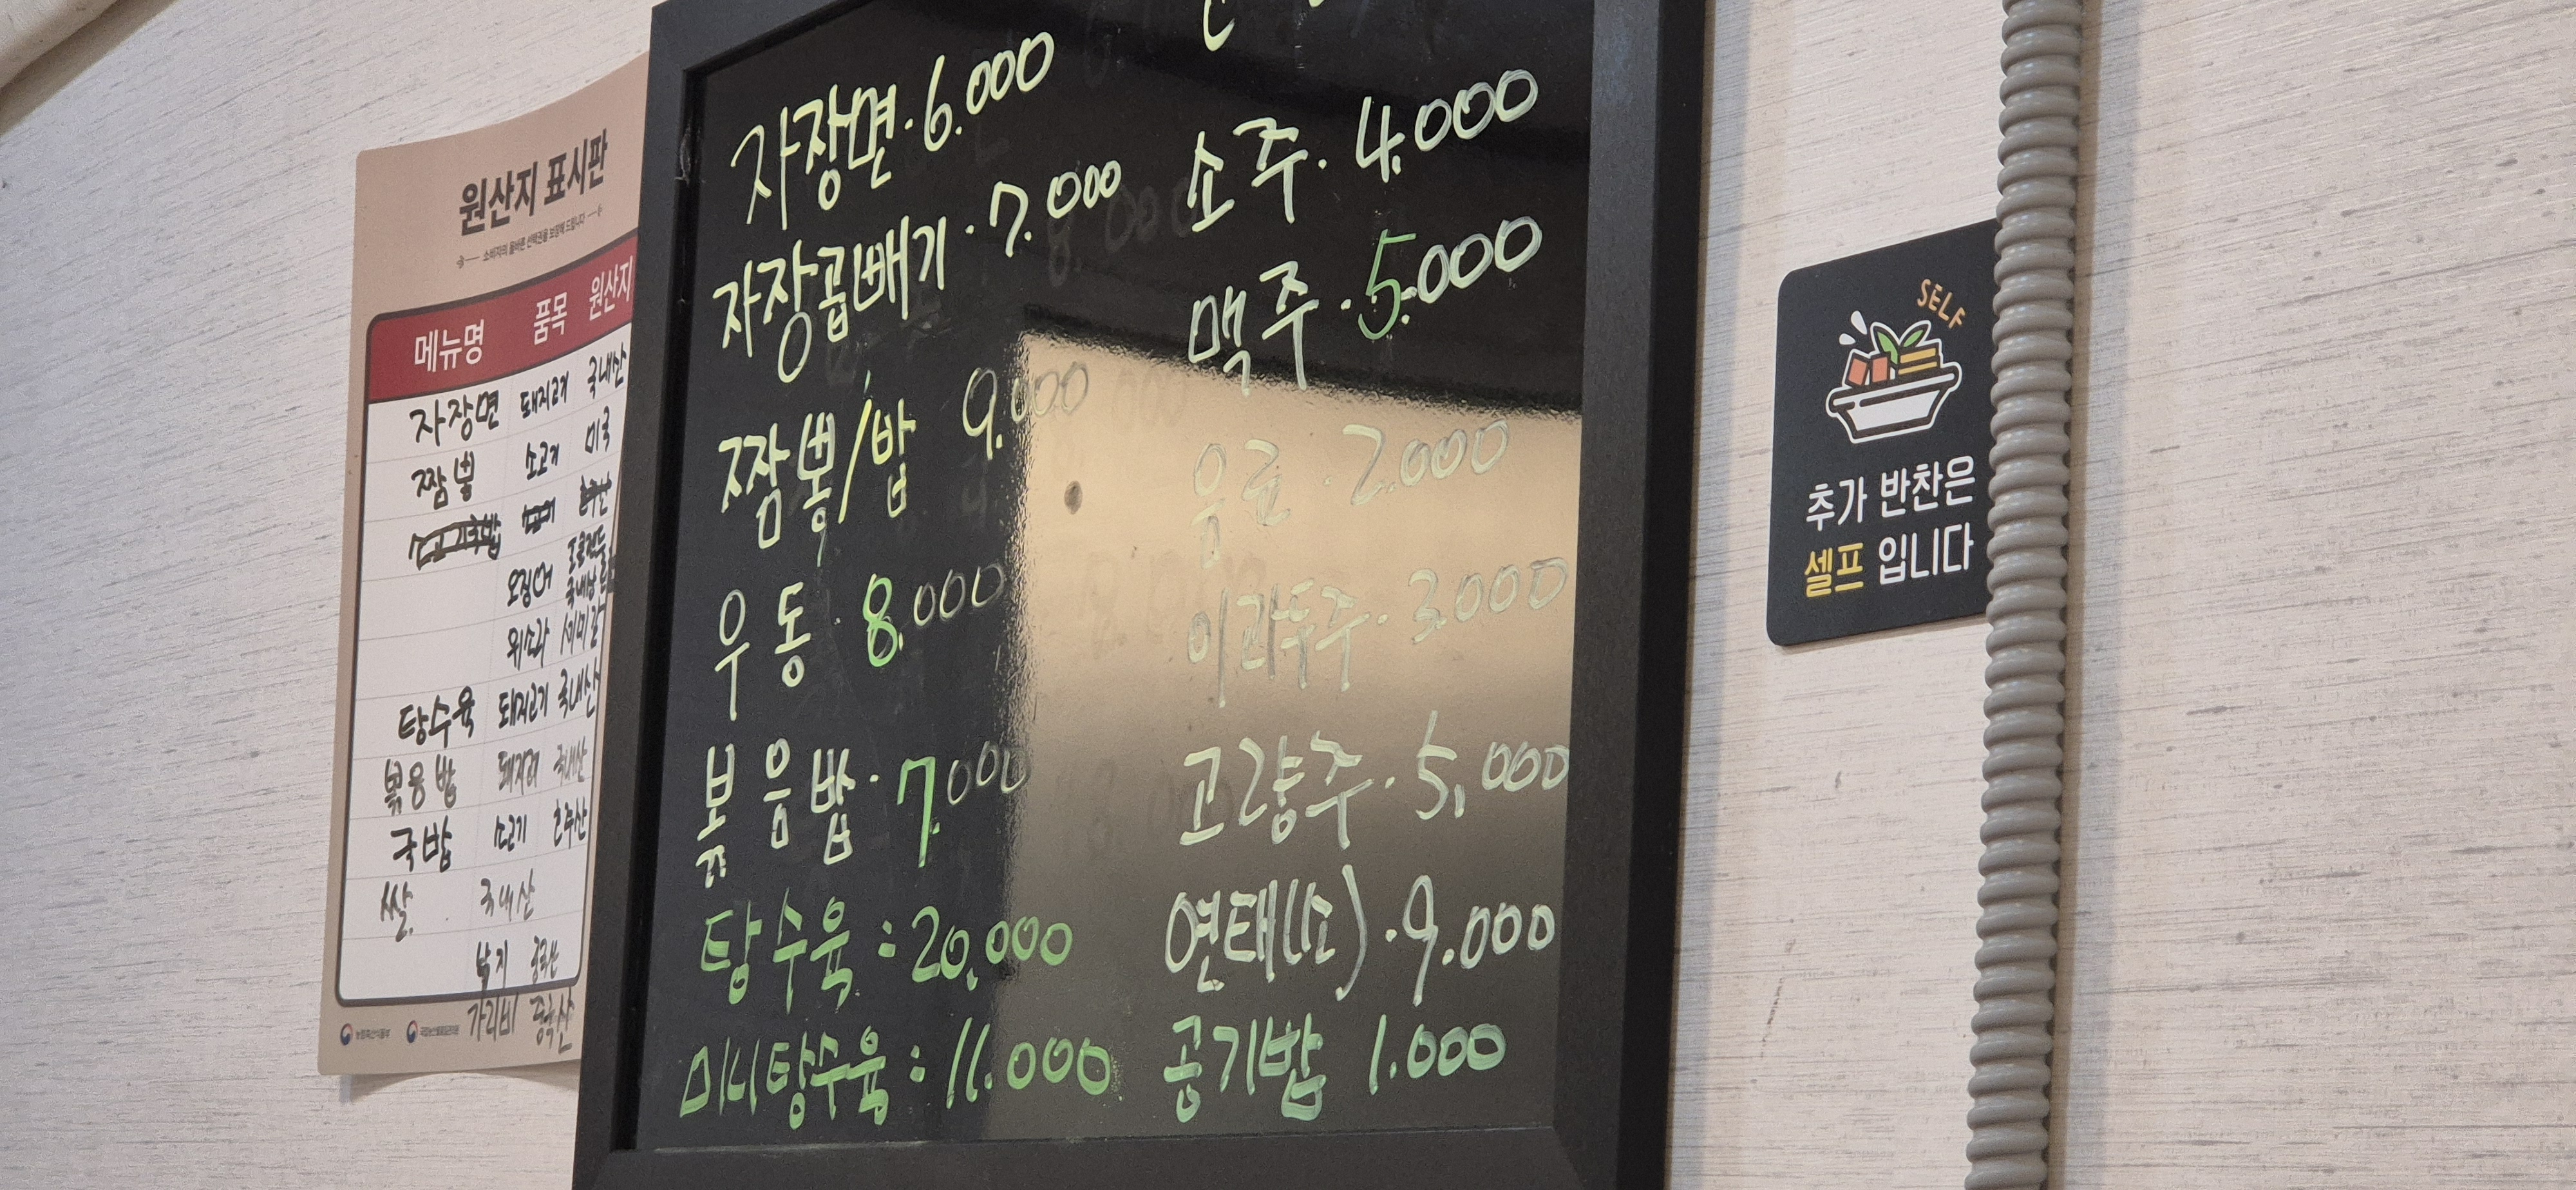 원산지 표시판
소비자의 올바른 선택권을 보장해 드립니다
메뉴명 품목 원산지
자장면 돼지고기 국내산
짬뽕 소고기 미국
오징어
탕수육 돼지고기 국내산
볶음밥 돼지고기 국내산
국밥 소고기 호주산
쌀 국내산
낙지
가리비 중국산
자장면 · 6.000
자장곱배기 · 7.000
짬뽕/밥 9.000
우동 · 8.000
볶음밥 · 7.000
탕수육 : 20.000
미니탕수육 : 11.000
소주 · 4.000
맥주 · 5.000
음료 · 2.000
이과두주 · 3.000
고량주 · 5,000
연태(소) · 9.000
공기밥 1.000
SELF
추가 반찬은
셀프 입니다